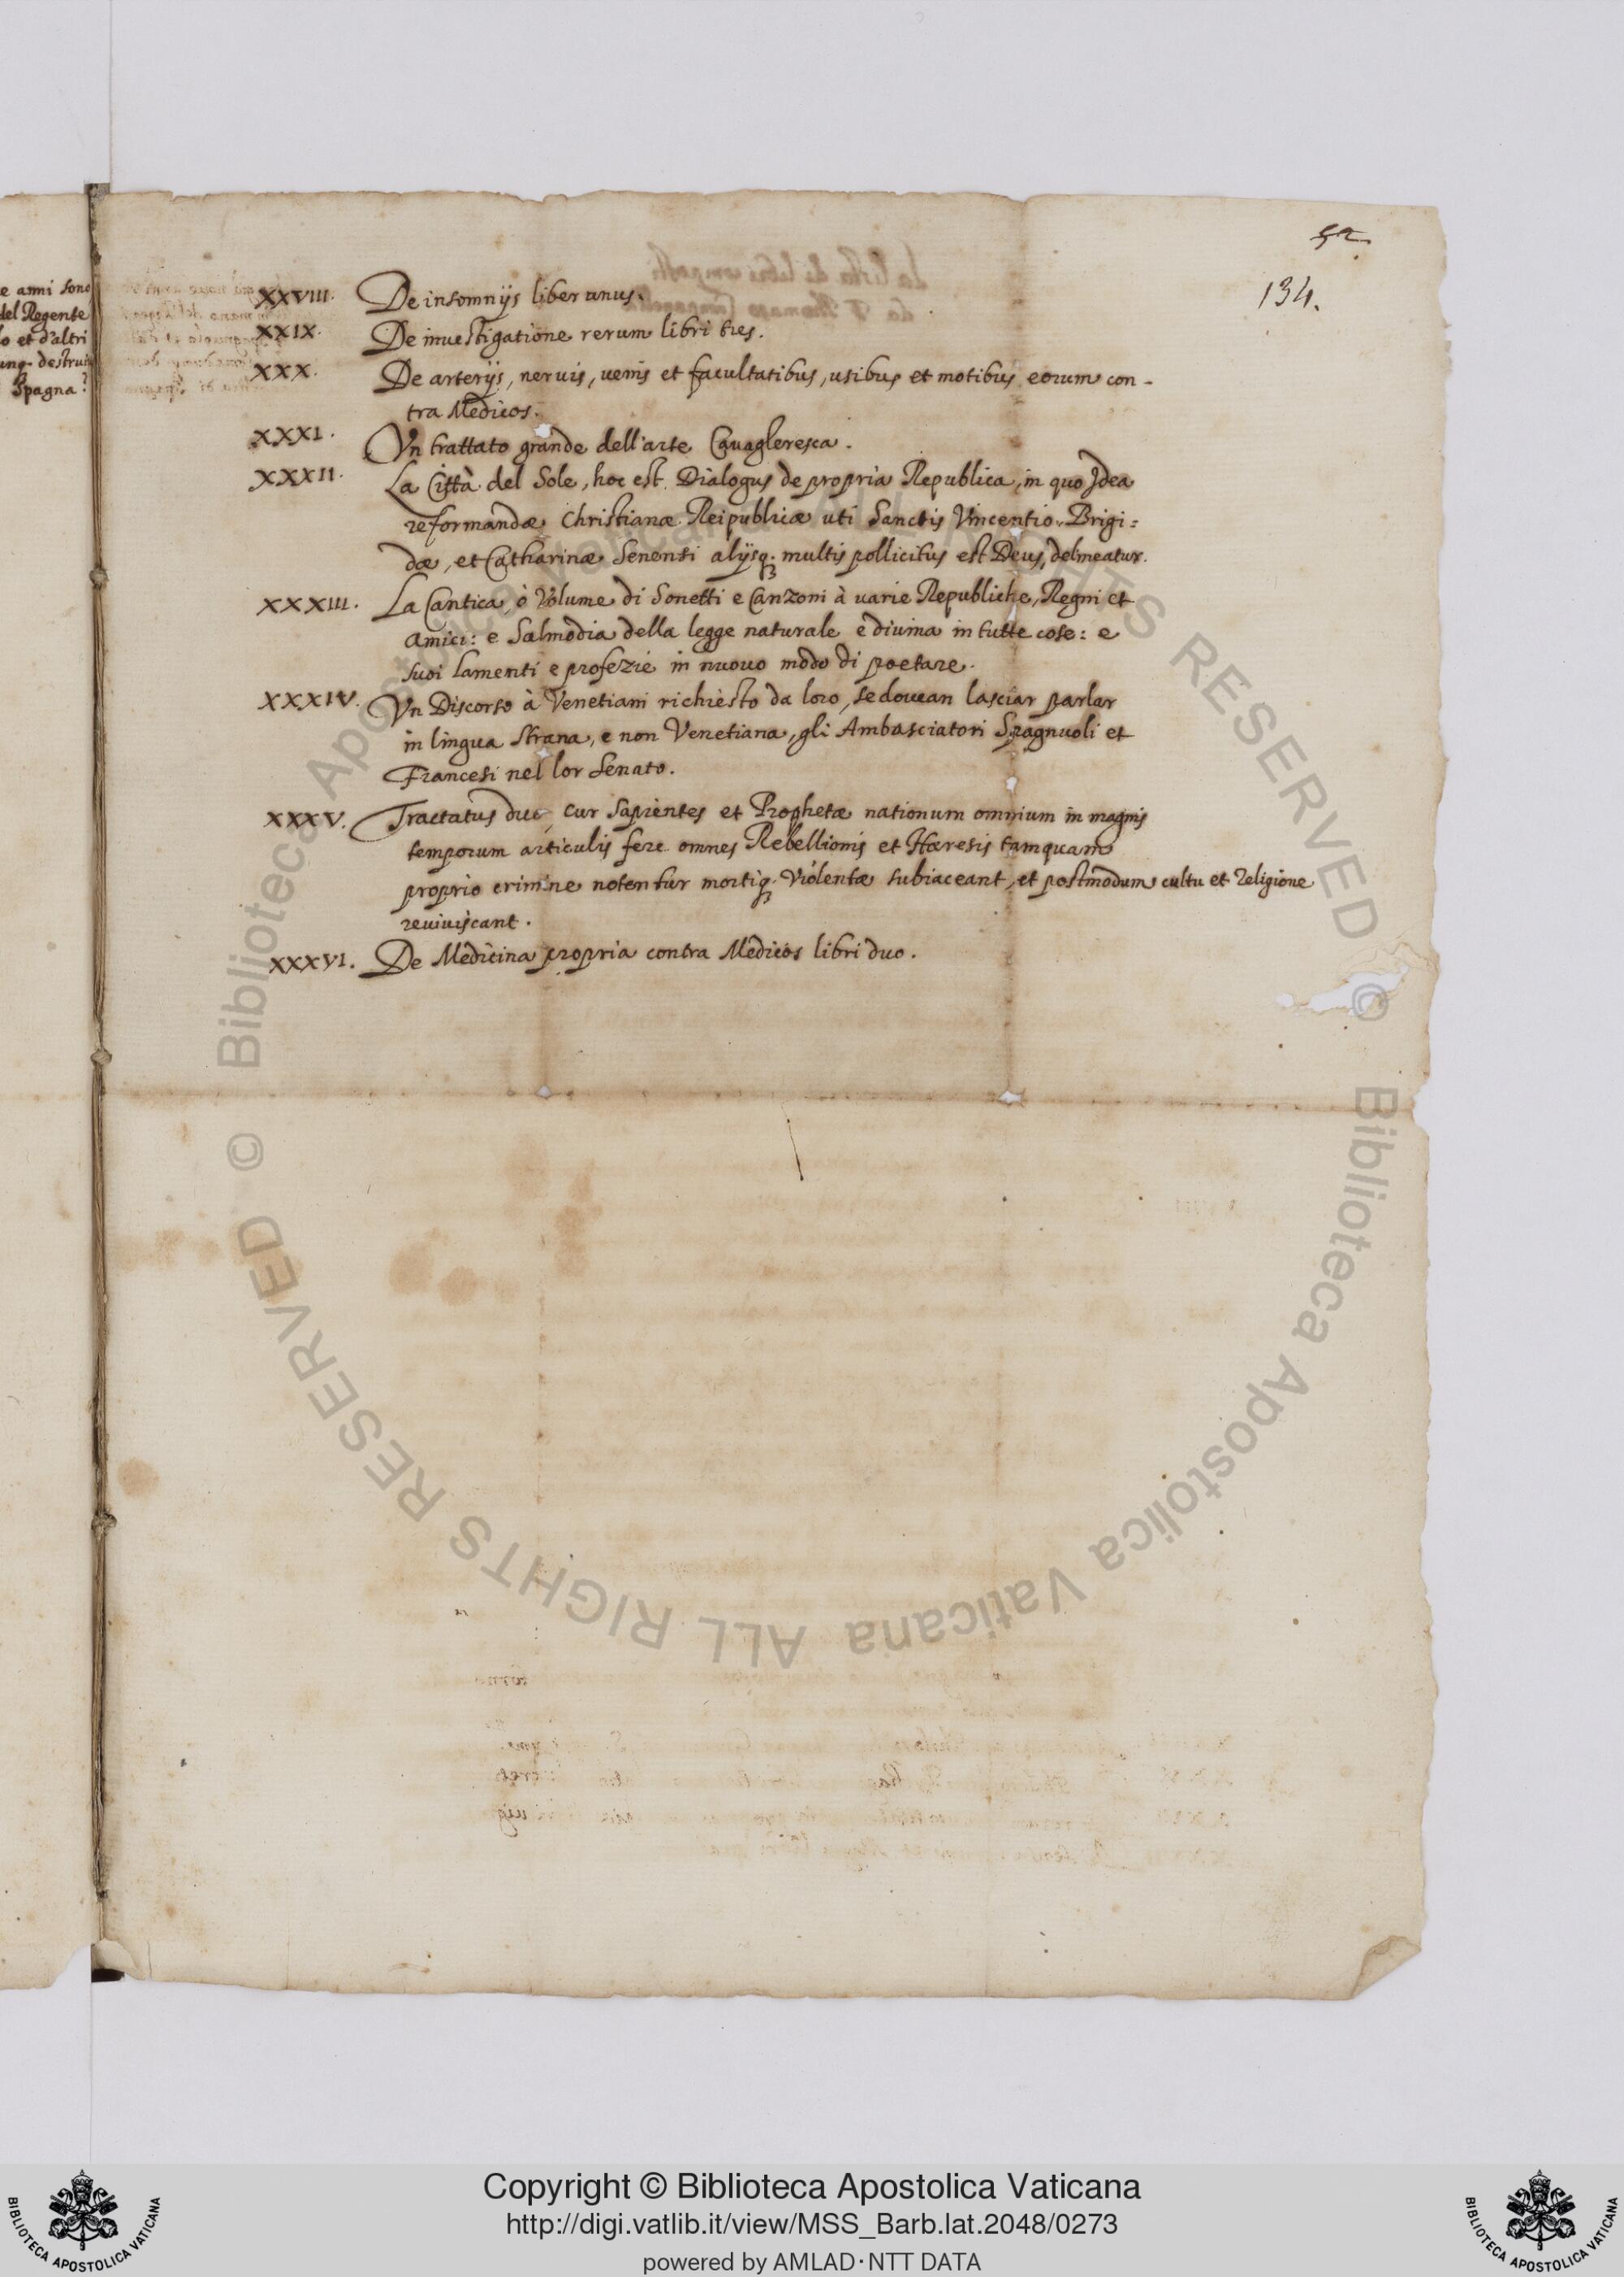 52
134.
e anni sono
del Regente
lo et d'altri
Spagna?
XXVIII. De insomnijs liber unus.
XXIX. De inuestigatione rerum libri tres.
XXX. De arterijs, neruis, uenis et facultatibus, usibus et motibus eorum con-
tra Medicos.
XXXI. Un trattato grande dell'arte Cauagleresca.
XXXII. La Città del Sole, hoc est Dialogus de propria Republica, in quo Idea
reformandæ Christianæ Reipublicæ uti Sanctis Vincentio, Brigi=
dæ, et Catharinæ Senensi alijsq; multis pollicitus est Deus, delineatur.
XXXIII. La Cantica, ò Volume di Sonetti e Canzoni à uarie Republiche, Regni et
amici: e Salmodia della legge naturale e diuina in tutte cose: e
suoi lamenti e profezie in nuouo modo di poetare.
XXXIV. Un Discorso à Venetiani richiesto da loro, se douean lasciar parlar
in lingua strana, e non Venetiana, gli Ambasciatori Spagnuoli et
Francesi nel lor Senato.
XXXV. Tractatus duo, cur Sapientes et Prophetæ nationum omnium in magnis
temporum articulis fere omnes Rebellionis et Hæresis tamquam
proprio crimine notentur mortiq; Violentæ subiaceant, et postmodum cultu et religione
reuiuiscant.
XXXVI. De Medicina propria contra Medicos libri duo.
© Biblioteca Apostolica Vaticana ALL RIGHTS RESERVED © Biblioteca Apostolica Vaticana ALL RIGHTS RESERVED
BIBLIOTECA APOSTOLICA VATICANA
Copyright © Biblioteca Apostolica Vaticana
http://digi.vatlib.it/view/MSS_Barb.lat.2048/0273
powered by AMLAD·NTT DATA
BIBLIOTECA APOSTOLICA VATICANA